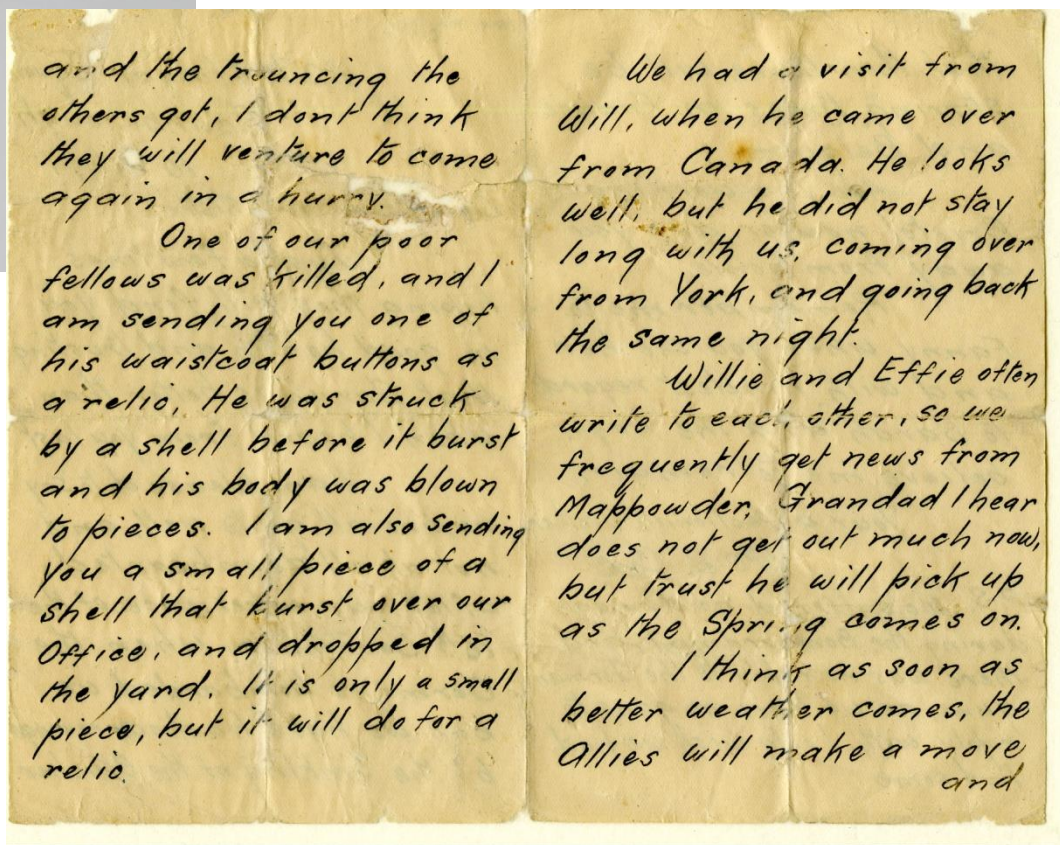 and the trouncing the
others got, I dont think
they will venture to come
again in a hurry.
One of our poor
fellows was killed, and I
am sending you one of
his waistcoat buttons as
a relic, He was struck
by a shell before it burst
and his body was blown
to pieces. I am also sending
you a small piece of a
shell that burst over our
Office, and dropped in
the yard. It is only a small
piece, but it will do for a
relic.
We had a visit from
Will, when he came over
from Canada. He looks
well, but he did not stay
long with us, coming over
from York, and going back
the same night.
Willie and Effie often
write to each other, so we
frequently get news from
Mappowder, Grandad I hear
does not get out much now,
but trust he will pick up
as the Spring comes on.
I think as soon as
better weather comes, the
Allies will make a move
and